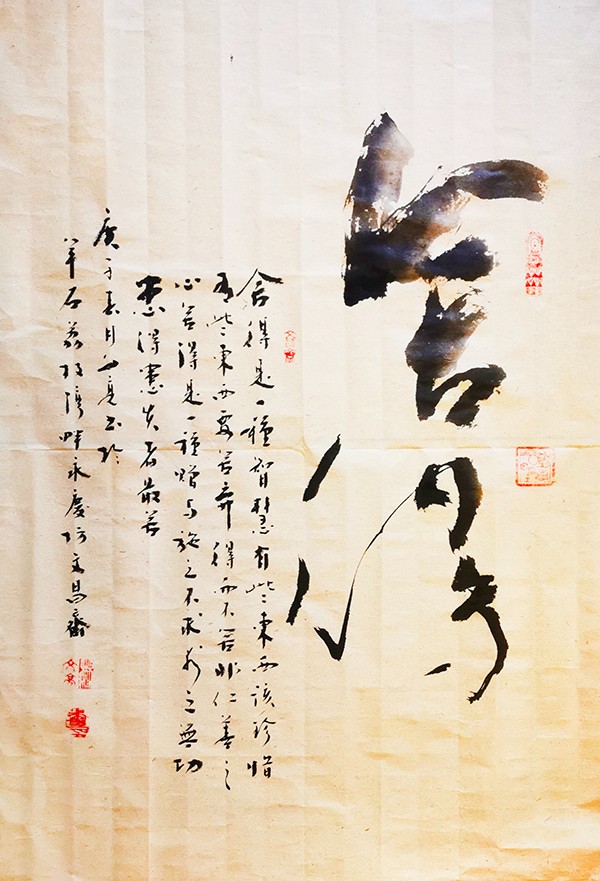 舍得
舍得是一種智慧有些東西該珍惜
有些東西要舍弃得而不舍非仁善之
心舍得是一種赠与施之不求利之無功
患得患失者最苦
庚子春月亮书於
羊石荔枝湾畔永慶坊文昌齋